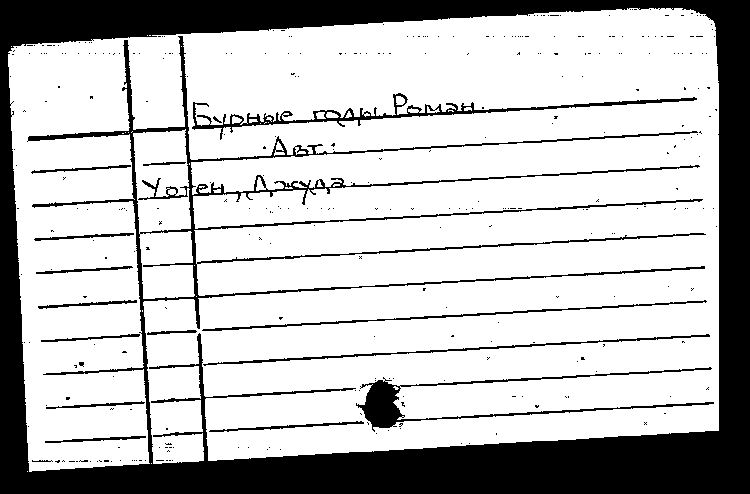 Бурные годы. Роман.
Авт.:
Уотен, Джуда.